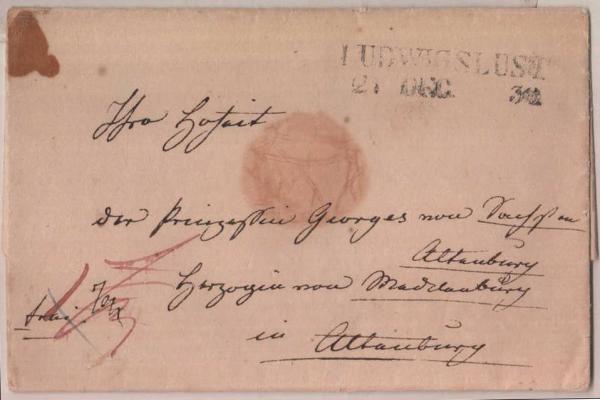 LUDWIGSLUST
21 DEC.
Ihro Hoheit
der Prinzessin Georges von Sachsen
Altenburg
Herzogin von Mecklenburg
in Altenburg
frei.